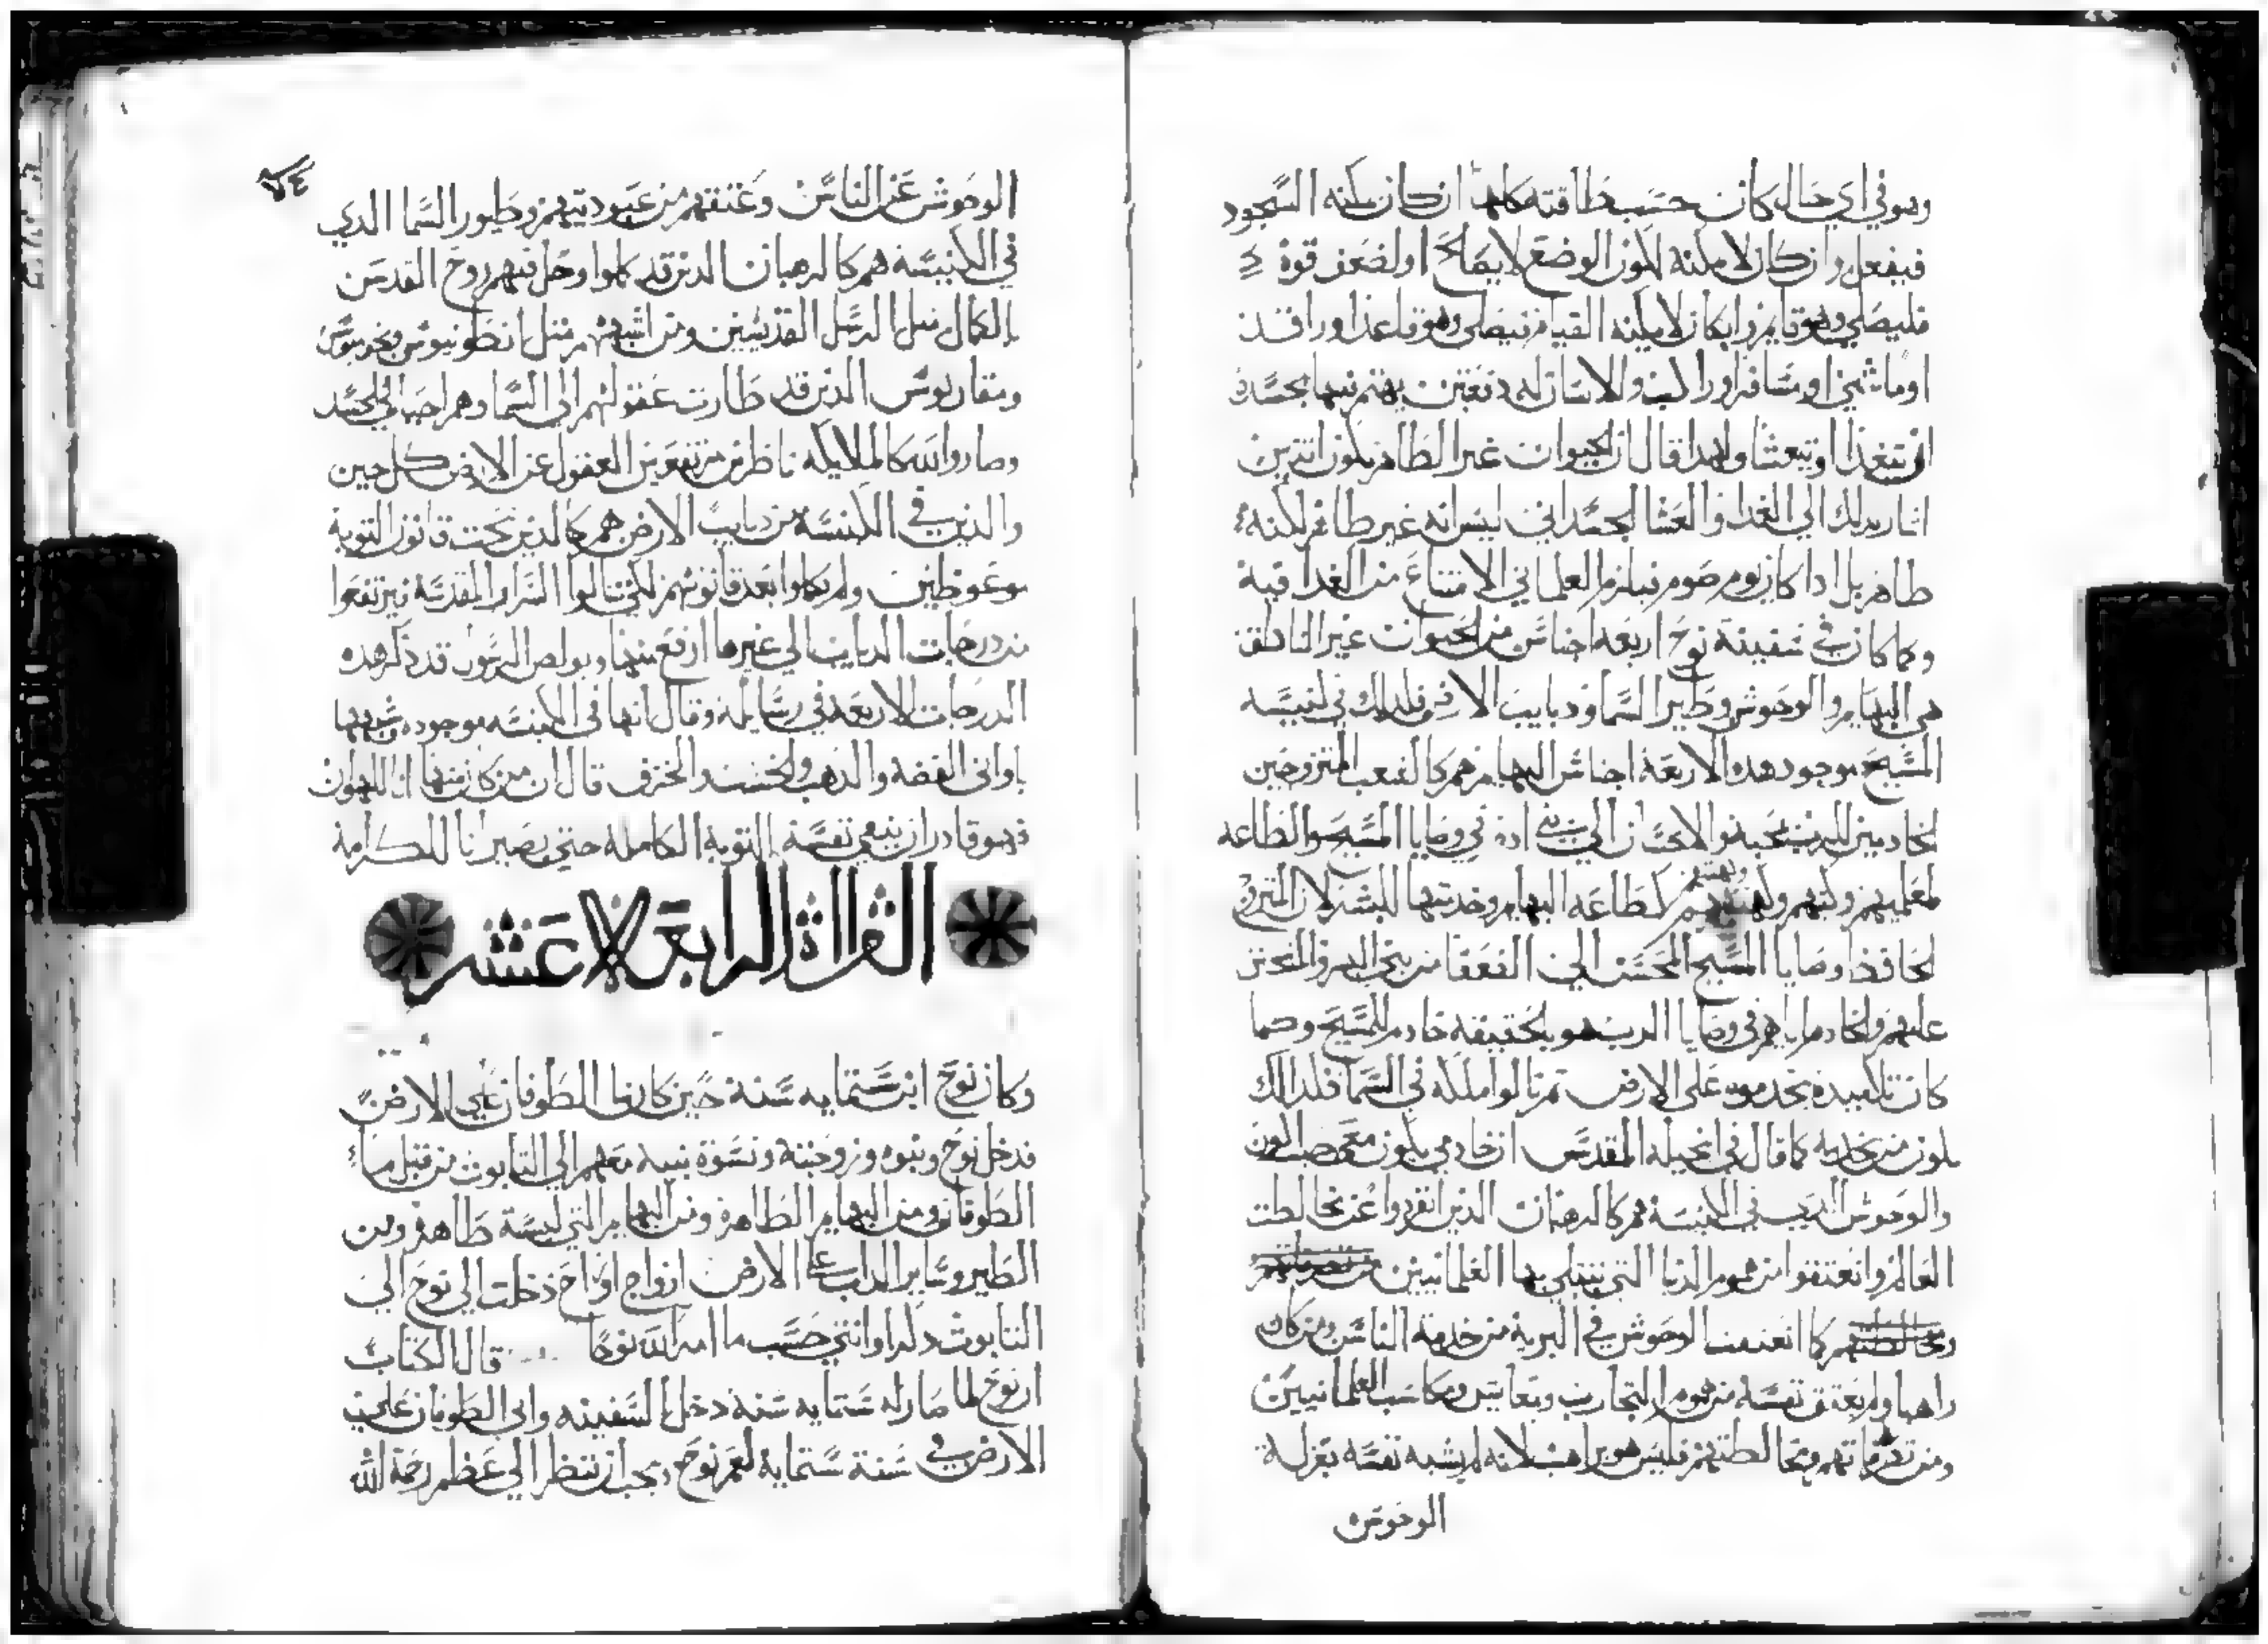 وهو في اي حال كان حسب طاقته كلها ان كان يمكنه السجود
فيفعل وان كان لا يمكنه لكون الوضع لا يصلح او لضعف قوة
فليصلي وهو قايم وان كان لا يمكنه القيام فيصلي وهو قاعد او راقد
او ماشي او مسافر او راكب والانسان له دفعتين يهتم فيها بجسده
ان يتغدا او يتعشا ولهدا قال ان الحيوان غير الطاهر يكون اتنين
اتنان بدلك الي الغدا والعشا الجسداني ليس انه غير طاهر لكنه
طاهر بل ادا كان يوم صوم فيلزم العلماني الامتناع من الغدا فيه
وكما كان في سفينة نوح اربعه اجناس من الحيوان غير الناطق
هي البهايم والوحوش وطير السما ودبابيب الارض فلدلك في كنيسه
المسيح موجود هده الاربعة اجناس البهايم هم كالشعب المتزوجين
الخادمين للرب بمحبه والاحسان الي في وصايا المسيح والطاعه
لمعلميهم وكهنتهم كطاعه البهايم وخدمتها للبشر لان المتزوج
الحافظ وصايا المسيح المحسن الي الضعفا من بني البشر والمتحنن
عليهم والخادم اياهم في وصايا الرب هو بالحقيقه خادم للمسيح وكما
كان تلاميده يخدموه علي الارض تم نالوا ملكه في السما فلدلك
يكون من يخدمه كما قال في انجيله المقدس ان خادمي يكون معي حيث اكون
والوحوش الدين في الكنيسه هم كالرهبان الدين انفردوا عن مخالطت
العالم وانعتقوا من هموم الدنيا التي يبتلي بها العلمانيين
ومخالطتهم كما انعتقت الوحوش في البرية من خدمة الناس ومن كان
راهبا ولم يعتق نفسه من هموم التجارب ومعايش ومكاسب العلمانيين
ومن تصرفاتهم ومخالطتهم فليس هو براهب لانه لم يشبه نفسه بعزلة
الوحوش
٧٤
الوحوش عن الناس وعتقهم من عبوديتهم وطيور السما الدي
في الكنيسه هم كالرهبان الدين قد كملوا وحل فيهم روح القدس
بالكمال متل الرسل القديسين ومن اشبههم متل انطونيوس وبخوميوس
ومقاريوس الدين قد طارت عقولهم الي السما وهم احيا في الجسد
وصاروا لله كالملايكه ناظرين مرتفعين العقول عن الارض كل حين
والدين في الكنيسه من دبابيب الارض هم كالدين تحت قانون التوبة
موعوظين ولم يكملوا بعد قانونهم لكي ينالوا السراير المقدسه فيرتفعوا
من درجات الدبايب الي غيرها ارفع منها وبولص الرسول قد ذكر هده
الدرجات الاربعه في رسايله وقال انها في الكنيسه موجوده شبهها
باواني الفضه والدهب والخشب والخزف قال ان من كان منها انا للهوان
فهو قادر ان ينقي نفسه بالتوبه الكامله حتي يصير انا للكرامة
القراة الرابعة عشر
وكان نوح ابن ستمايه سنة حين كان ما الطوفان علي الارض
فدخل نوح وبنوه وزوجته ونسوة بنيه معهم الي التابوت من قبل ماء
الطوفان ومن البهايم الطاهرة ومن البهايم التي ليسة طاهرة ومن
الطير وساير الداب علي الارض ازواج ازواج دخلت الي نوح الي
التابوت دكرا وانتي حسب ما امر الله نوحا قال الكتاب
ان نوح لما صار له ستمايه سنة دخل السفينه واتي الطوفان علي
الارض في سنة ستمايه لعمر نوح ويجب ان ننظر الي عظم رحمة الله